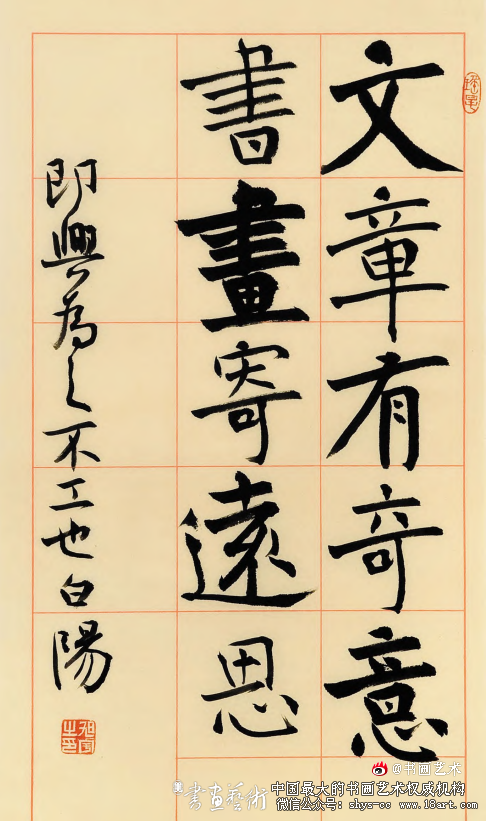 文章有奇意
書畫寄遠思
即興為之不工也白陽
@书画艺术
書畫藝術
中国最大的书画艺术权威机构
微信公众号: shys-cc www.18art.com